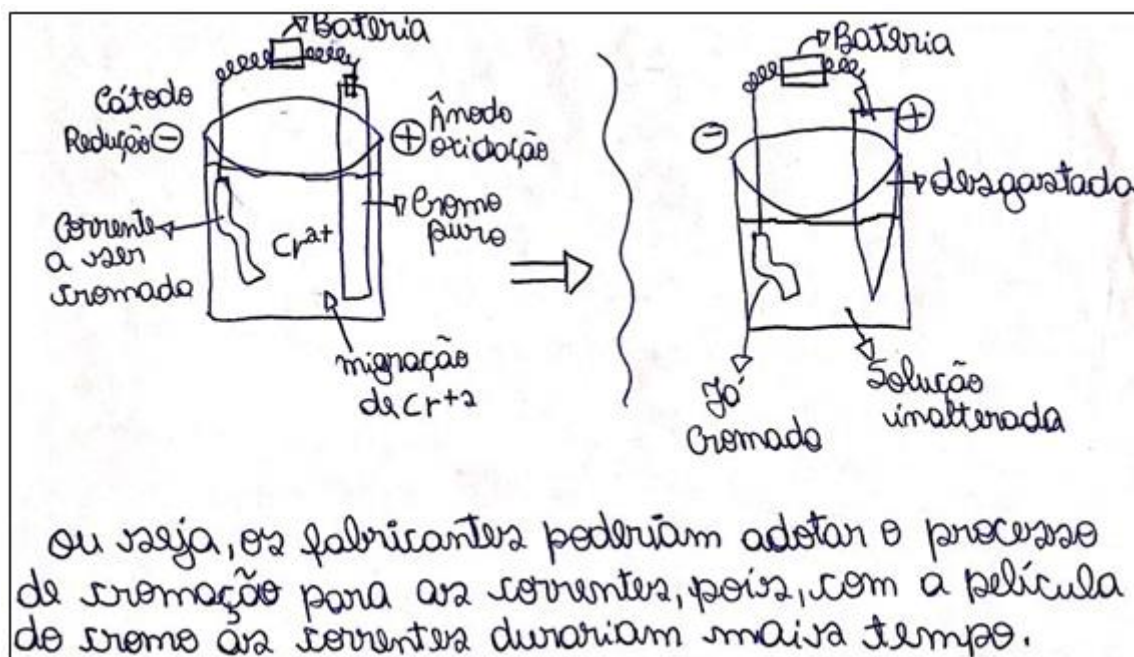 Bateria
Cátodo
Redução ⊖
⊕ Ânodo
oxidação
Corrente
a ser
cromada
Cr²⁺
Cromo
puro
migração
de Cr+2
Bateria
⊖
⊕
desgastada
Já
Cromado
Solução
inalterada
ou seja, os fabricantes poderiam adotar o processo
de cromação para as correntes, pois, com a película
do cromo as correntes durariam mais tempo.